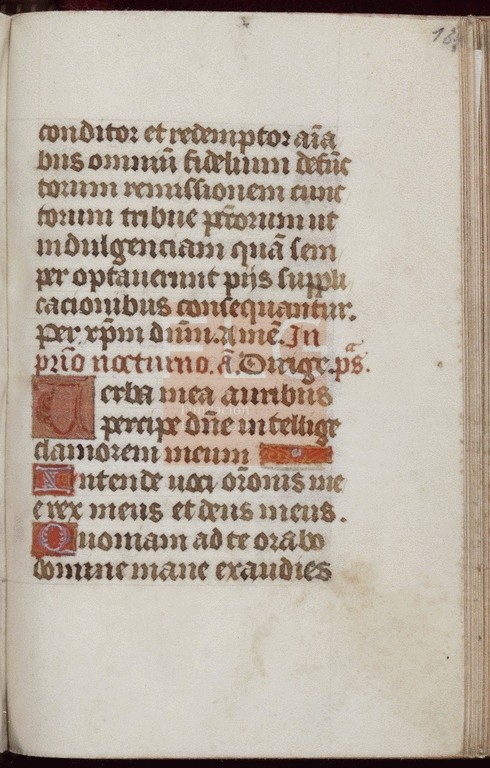 18
conditor et redemptor aīa
bus omniū fidelium defūc
torum remissionem cunc
torum tribue pctōrum ut
indulgenciam quā sem
per optauerunt pijs suppli
cacionibus consequantur.
Per xp̄m dnm̄. Amē. In
prīo nocturno. ā. Dirige. ps.
Verba mea auribus
percipe dn̄e intellige
clamorem meum
Intende uoci or̄onis me
e rex meus et deus meus.
Quoniam ad te orabo
domine mane exaudies